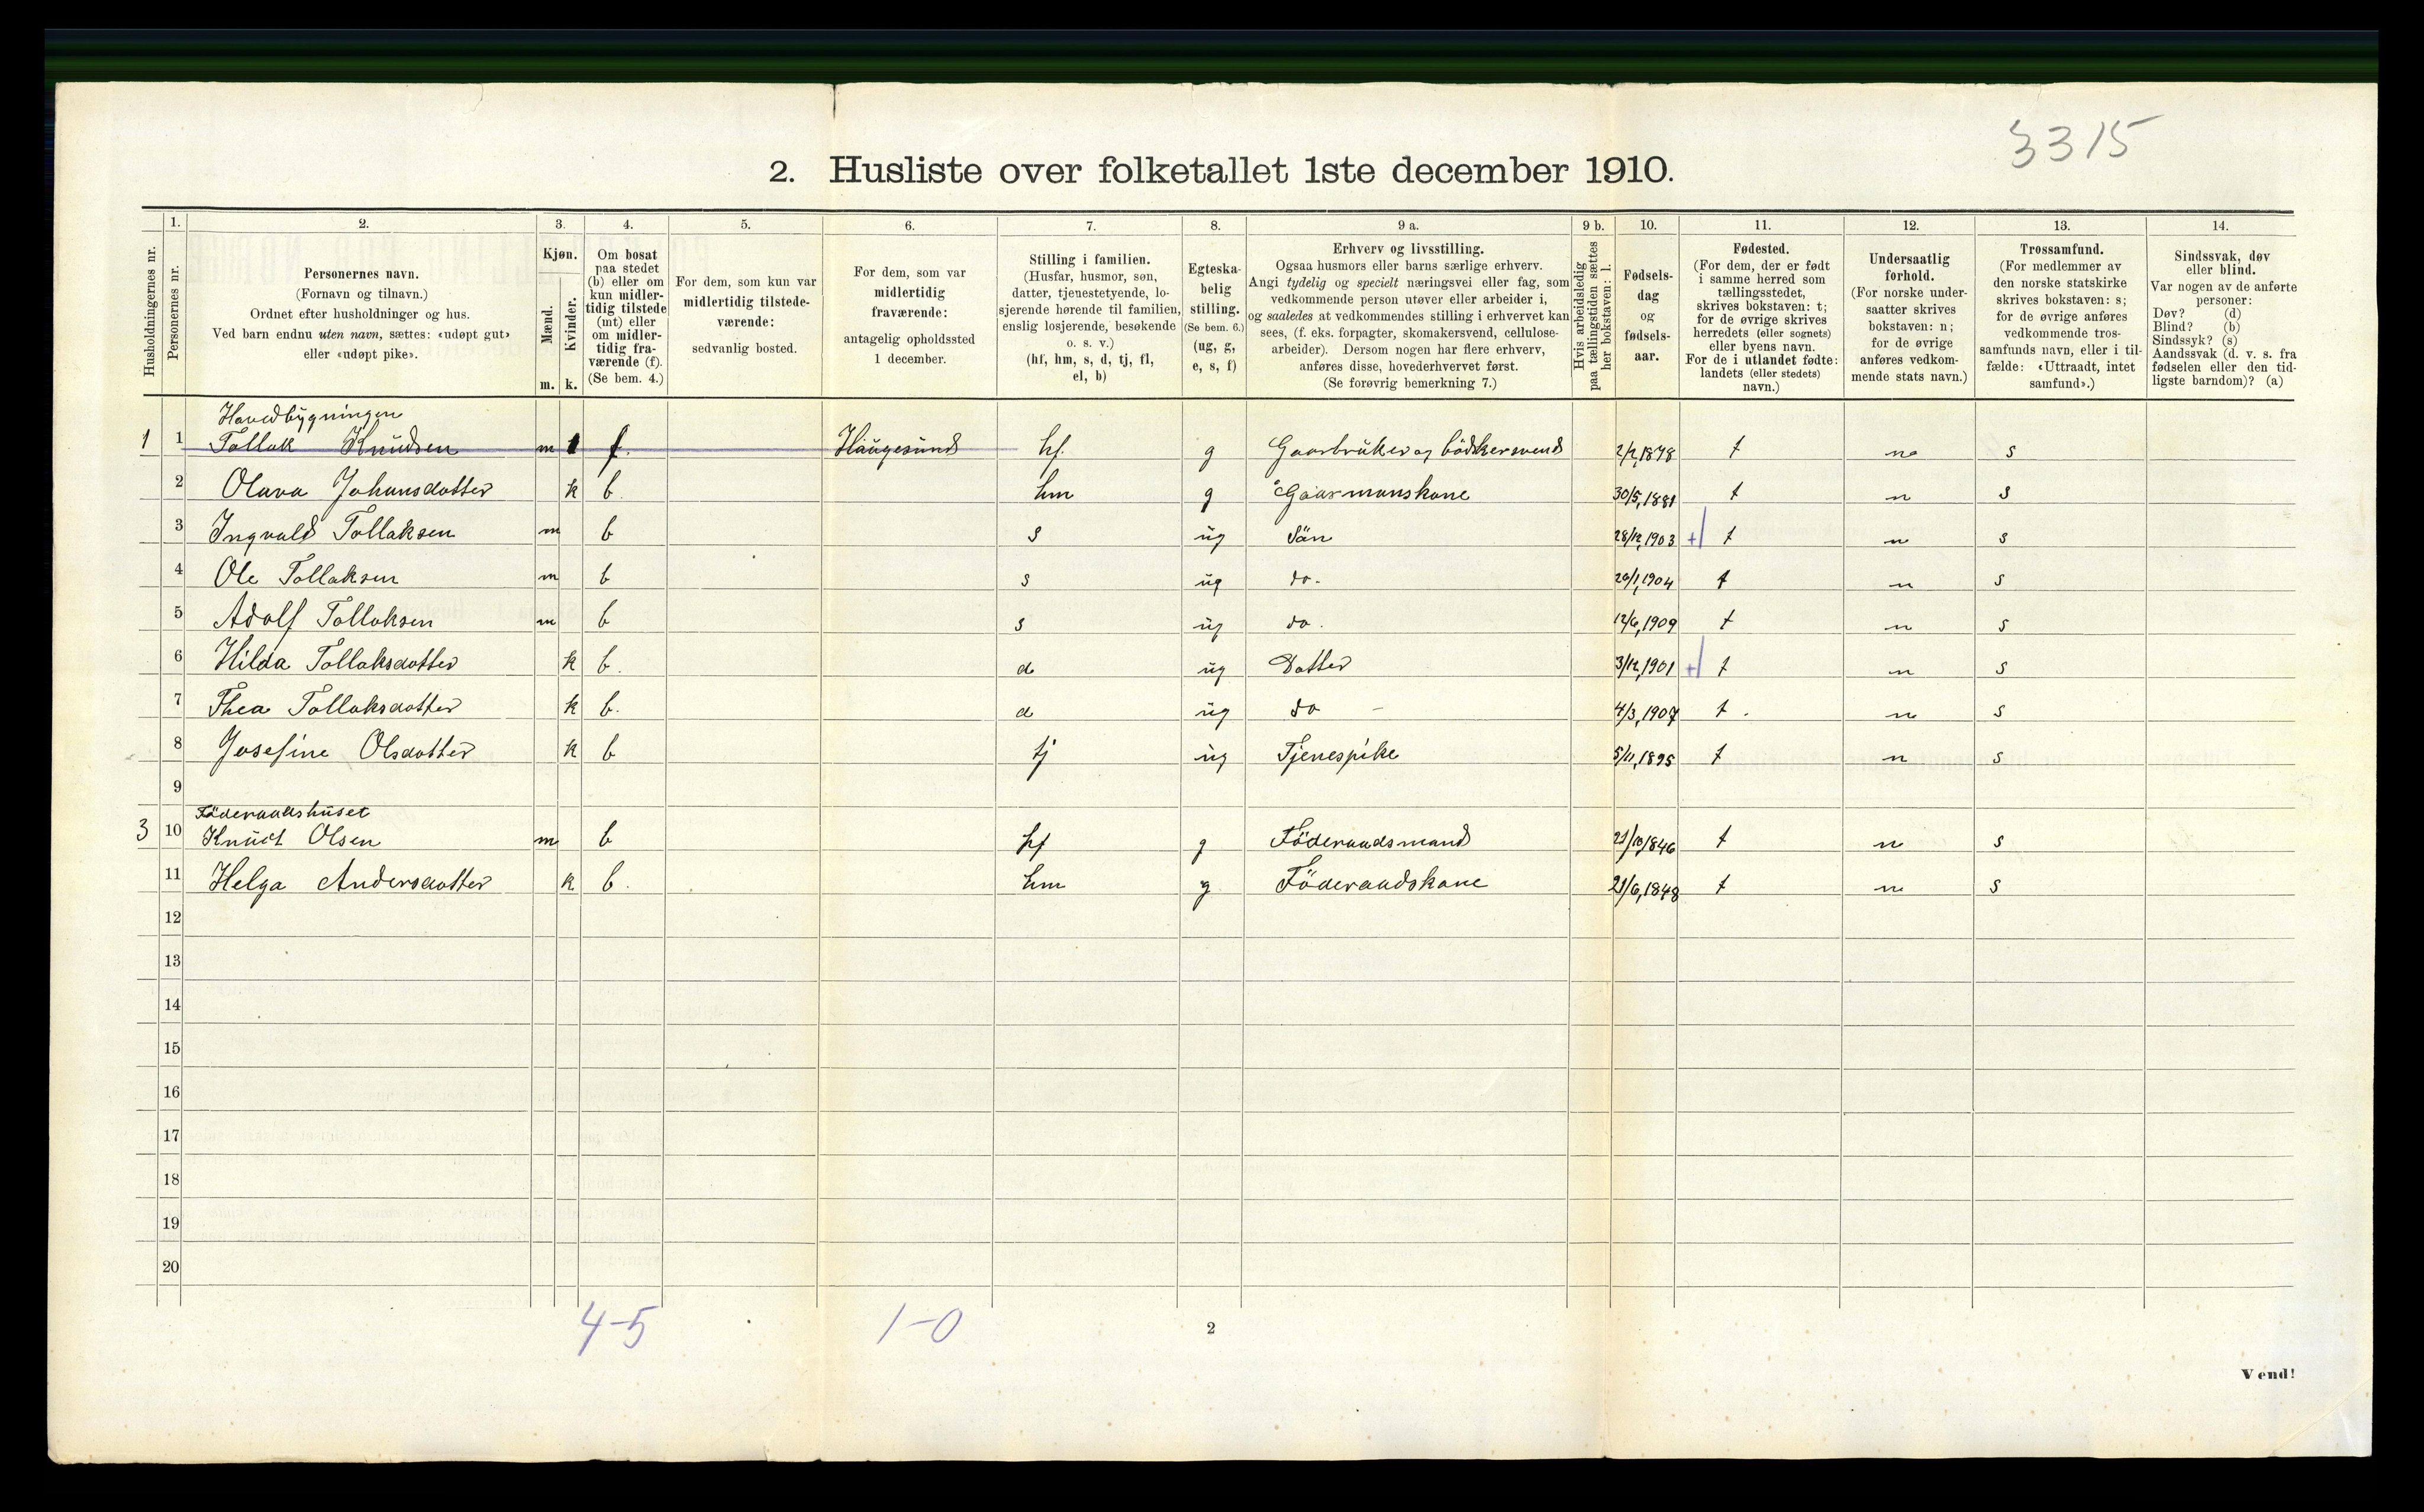 3315
2. Husliste over folketallet 1ste december 1910.
1. 2. 3. 4. 5. 6. 7. 8. 9 a. 9 b. 10. 11. 12. 13. 14.
Husholdningernes nr.
Personernes nr.
Personernes navn.
(Fornavn og tilnavn.)
Ordnet efter husholdninger og hus.
Ved barn endnu uten navn, sættes: «udøpt gut»
eller «udøpt pike».
Kjøn.
Mænd.
Kvinder.
m. k.
Om bosat
paa stedet
(b) eller om
kun midler-
tidig tilstede
(mt) eller
om midler-
tidig fra-
værende (f).
(Se bem. 4.)
For dem, som kun var
midlertidig tilstede-
værende:
sedvanlig bosted.
For dem, som var
midlertidig
fraværende:
antagelig opholdssted
1 december.
Stilling i familien.
(Husfar, husmor, søn,
datter, tjenestetyende, lo-
sjerende hørende til familien,
enslig losjerende, besøkende
o. s. v.)
(hf, hm, s, d, tj, fl,
el, b)
Egteska-
belig
stilling.
(Se bem. 6.)
(ug, g,
e, s, f)
Erhverv og livsstilling.
Ogsaa husmors eller barns særlige erhverv.
Angi tydelig og specielt næringsvei eller fag, som
vedkommende person utøver eller arbeider i,
og saaledes at vedkommendes stilling i erhvervet kan
sees, (f. eks. forpagter, skomakersvend, cellulose-
arbeider). Dersom nogen har flere erhverv,
anføres disse, hovederhvervet først.
(Se forøvrig bemerkning 7.)
Hvis arbeidsledig
paa tællingstiden sættes
her bokstaven: l.
Fødsels-
dag
og
fødsels-
aar.
Fødested.
(For dem, der er født
i samme herred som
tællingsstedet,
skrives bokstaven: t;
for de øvrige skrives
herredets (eller sognets)
eller byens navn.
For de i utlandet fødte:
landets (eller stedets)
navn.)
Undersaatlig
forhold.
(For norske under-
saatter skrives
bokstaven: n;
for de øvrige
anføres vedkom-
mende stats navn.)
Trossamfund.
(For medlemmer av
den norske statskirke
skrives bokstaven: s;
for de øvrige anføres
vedkommende tros-
samfunds navn, eller i til-
fælde: «Uttraadt, intet
samfund».)
Sindssvak, døv
eller blind.
Var nogen av de anførte
personer:
Døv? (d)
Blind? (b)
Sindssyk? (s)
Aandssvak (d. v. s. fra
fødselen eller den tid-
ligste barndom)? (a)
Hovedbygningen
1 1 Tollak Knudsen m f. Haugesund hf. g Gaarbruker og bödkersvend 1878 t n s
2 Olava Johansdotter k b. hm g Gaarmanskone 30/5,1881 t n s
3 Ingvald Tollaksen m b s ug Sän 28/12,1903 + t n s
4 Ole Tollaksen m b s ug do. 20/1,1904 t n s
5 Adolf Tollaksen m b s ug do. 12/6,1909 t n s
6 Hilda Tollaksdotter k b. d ug Datter 3/12,1901 + t n s
7 Thea Tollaksdotter k b. d ug do - 4/3,1907 t. n s
8 Josefine Olsdotter k b tj ug Tjenespike 5/11,1895 t n s
9
Föderaadshuset
3 10 Knudt Olsen m b hf g Föderaadsmand 21/10,1846 t n s
11 Helga Andersdotter k b. hm g Föderaadskone 21/6,1848 t n s
12
13
14
15
16
17
18
19
20
4-5 1-0
2
Vend!